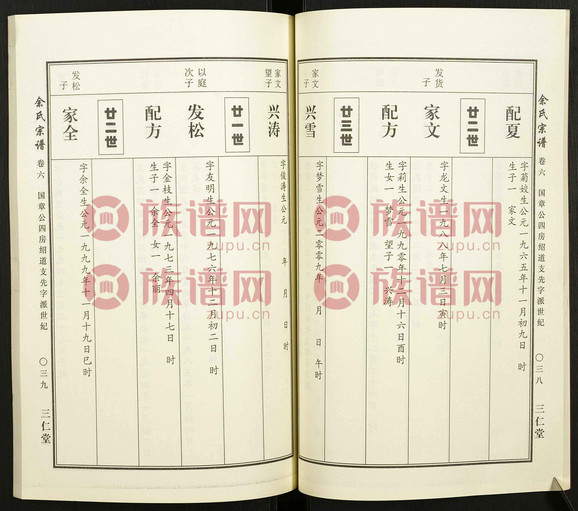 余氏宗谱
卷六
国章公四房绍道支先字派世纪
〇三八
三仁堂
配夏
生子一 家文
廿二世
发货
子
家文
字龙文生公元一九八八年七月三日寅时
配方
字莉生公元一九九〇年十二月十六日酉时
生女一 梦雪 望子一 兴涛
廿三世
家文
子
兴雪
字梦雪生公元二零零九年 月 日 午时
家文
望子
兴涛
字俊涛生公元 年 月 日 时
廿一世
以庭
次子
发松
字友明生公元一九七六年十二月初二日 时
配方
字金枝生公元一九七三年四月十七日 时
生子一 余全 女一 余丽
廿二世
发松
子
家全
字余全生公元一九九九年十一月十九日巳时
余氏宗谱
卷六
国章公四房绍道支先字派世纪
〇三九
三仁堂
族谱网
zupu.cn
族谱网
zupu.cn
族谱网
zupu.cn
族谱网
zupu.cn